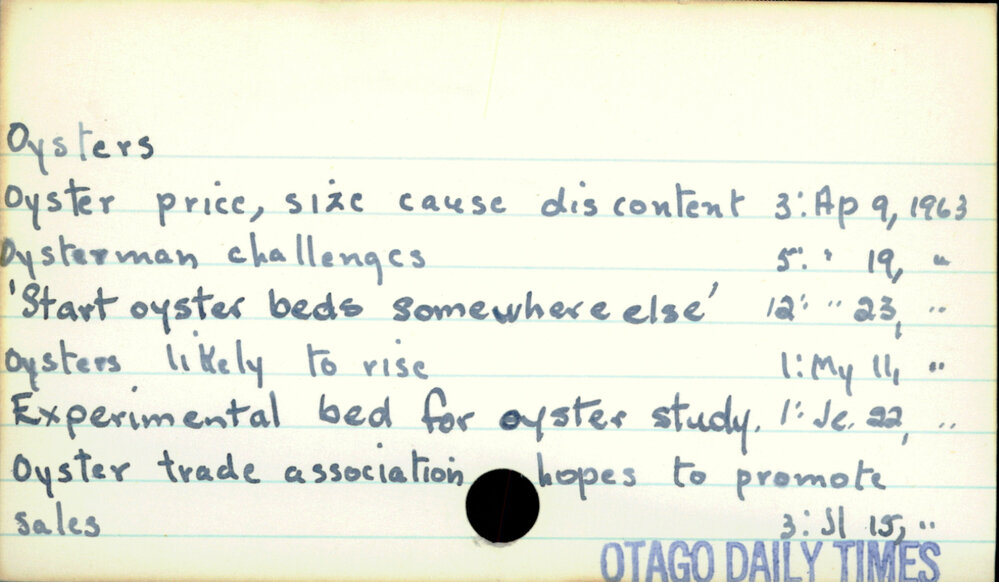 Oysters
Oyster price, size cause discontent 3: Ap 9, 1963
Oysterman challenges 5: " 19, "
'Start oyster beds somewhere else' 12: " 23, "
Oysters likely to rise 1: My 11, "
Experimental bed for oyster study. 1: Je. 22, "
Oyster trade association hopes to promote
sales 3: Jl 15, "
OTAGO DAILY TIMES